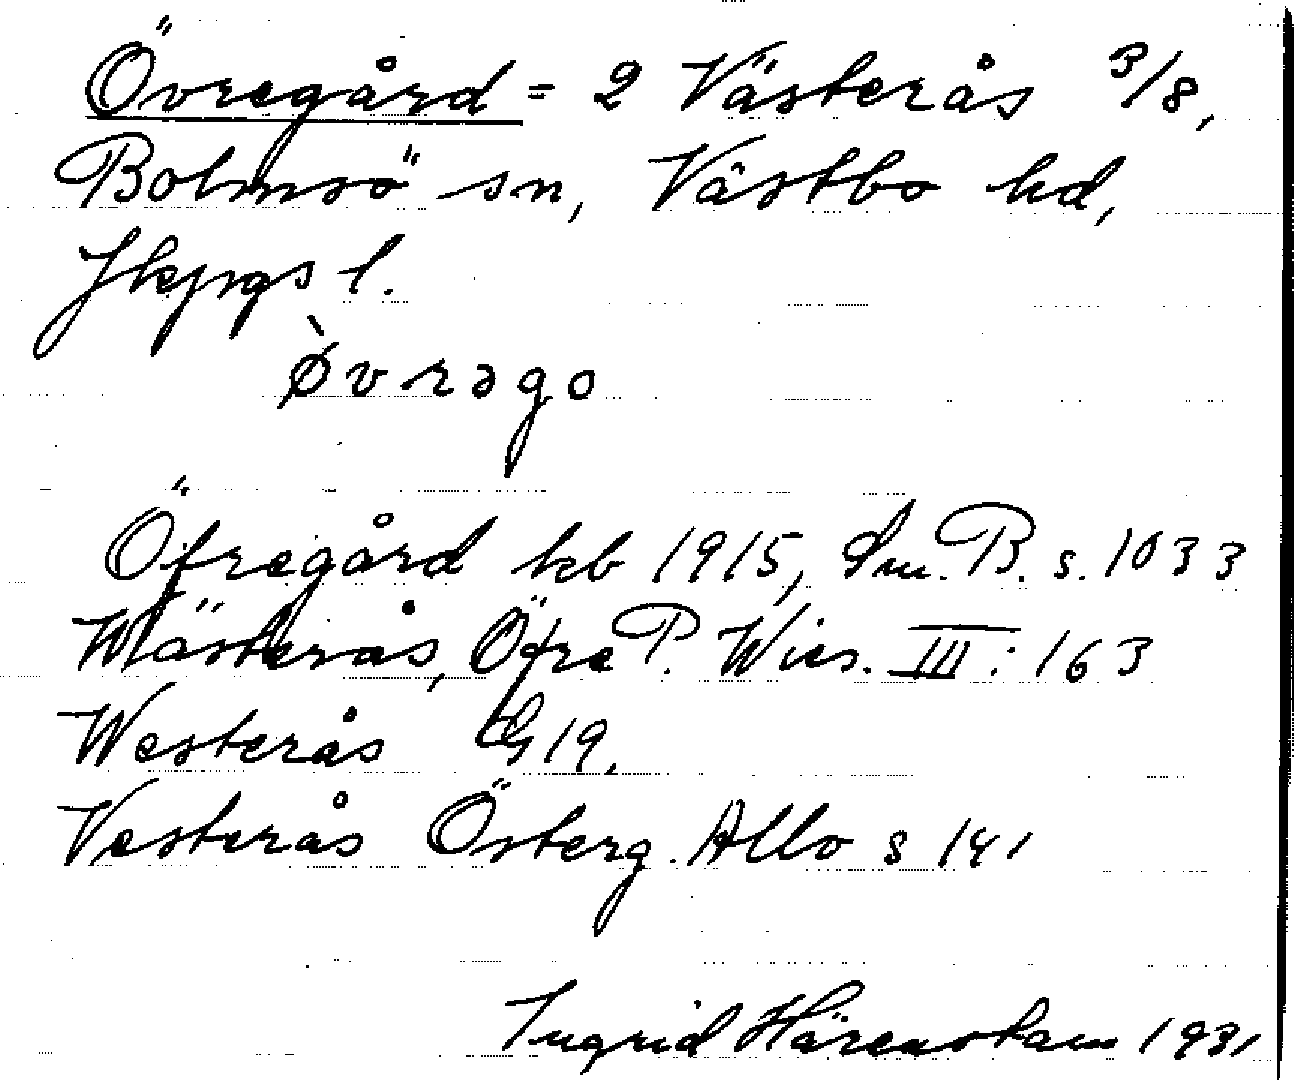 Övregård = 2 Västerås 3/8,
Bolmsö sn, Västbo hd,
Jkpgs l.
ø̀vrəgo
Öfregård kb 1915, Sm. B. s. 1033
Wästerås, Öfre P. Wies. III: 163
Westerås G 19.
Vesterås Österg. Allo s 141
Ingrid Härenstam 1931